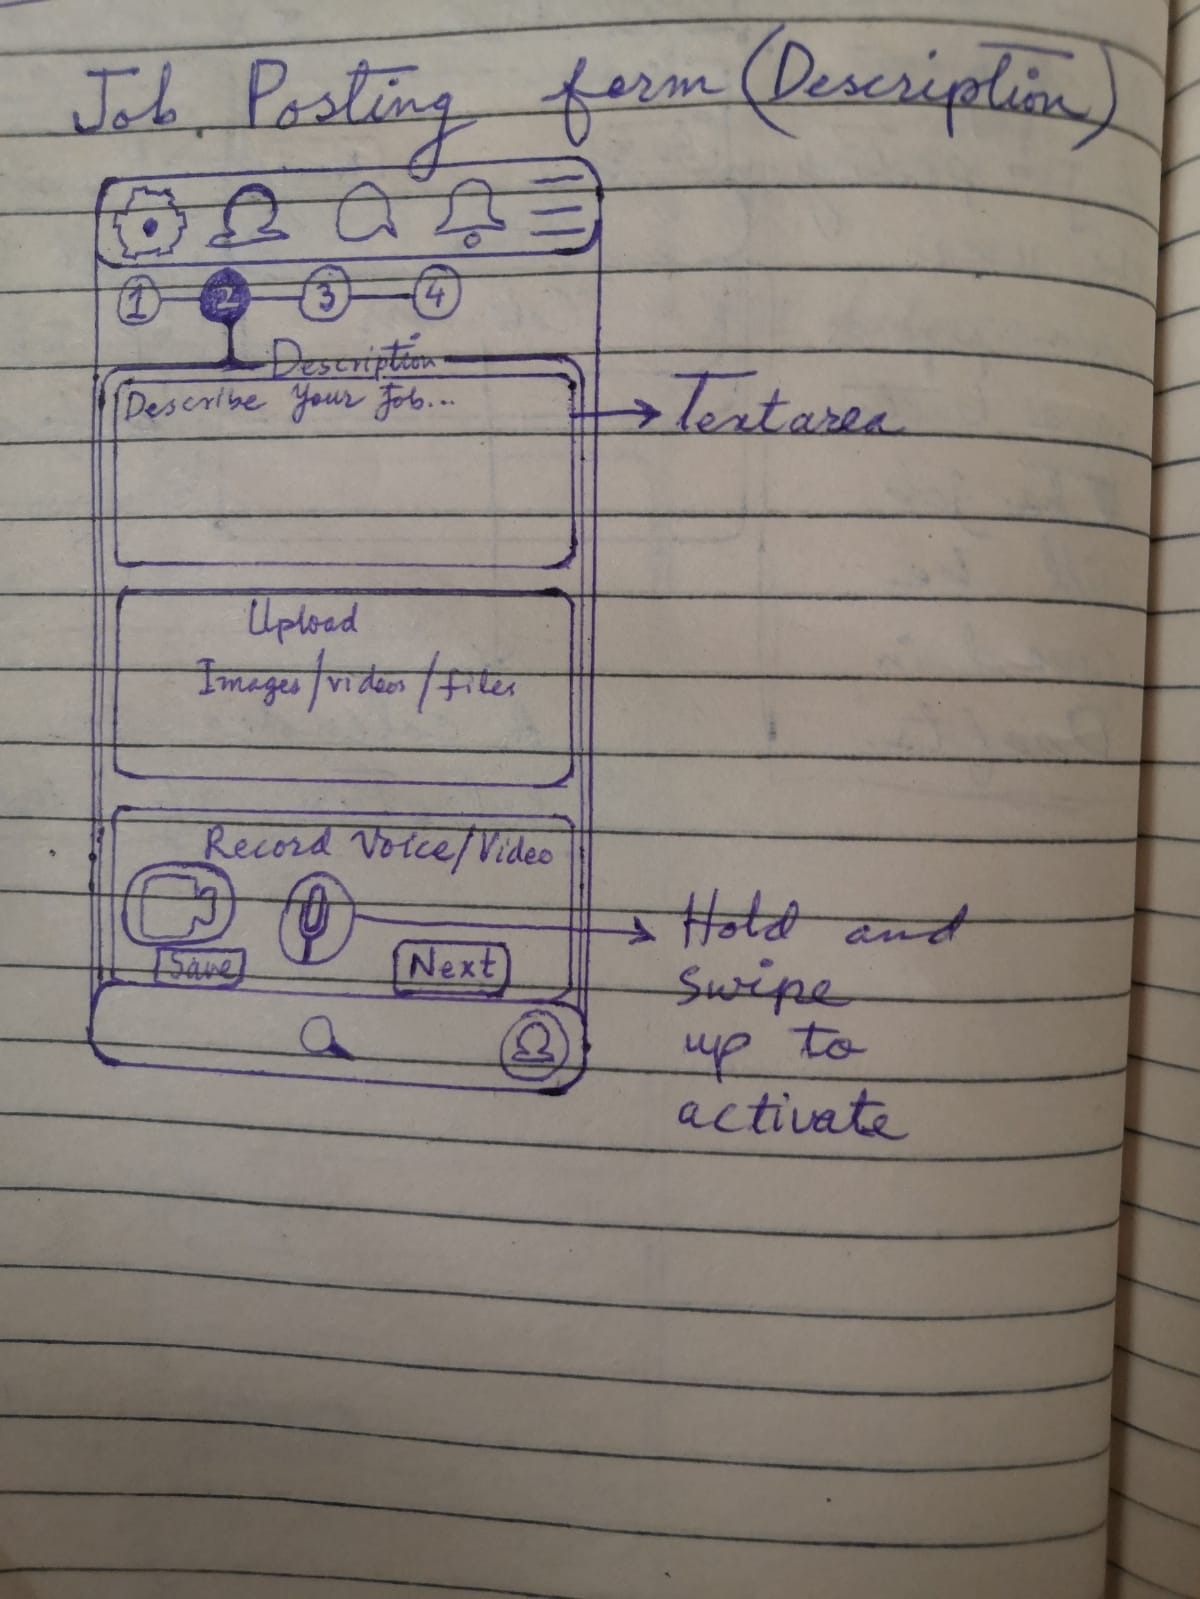 Job Posting form (Description)
1 2 3 4
Description
Describe Your Job...
Textarea
Upload
Images/videos/files
Record Voice/Video
Hold and
swipe
up to
activate
Save
Next